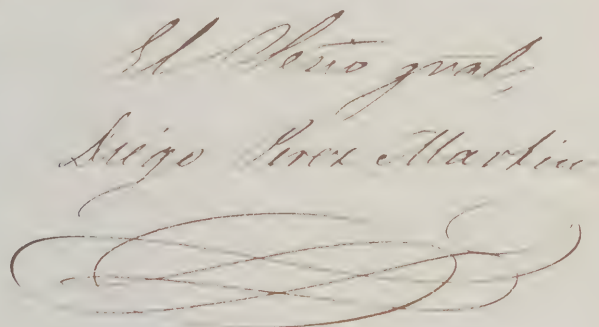 El Srio gral,
Diego Perez Martin